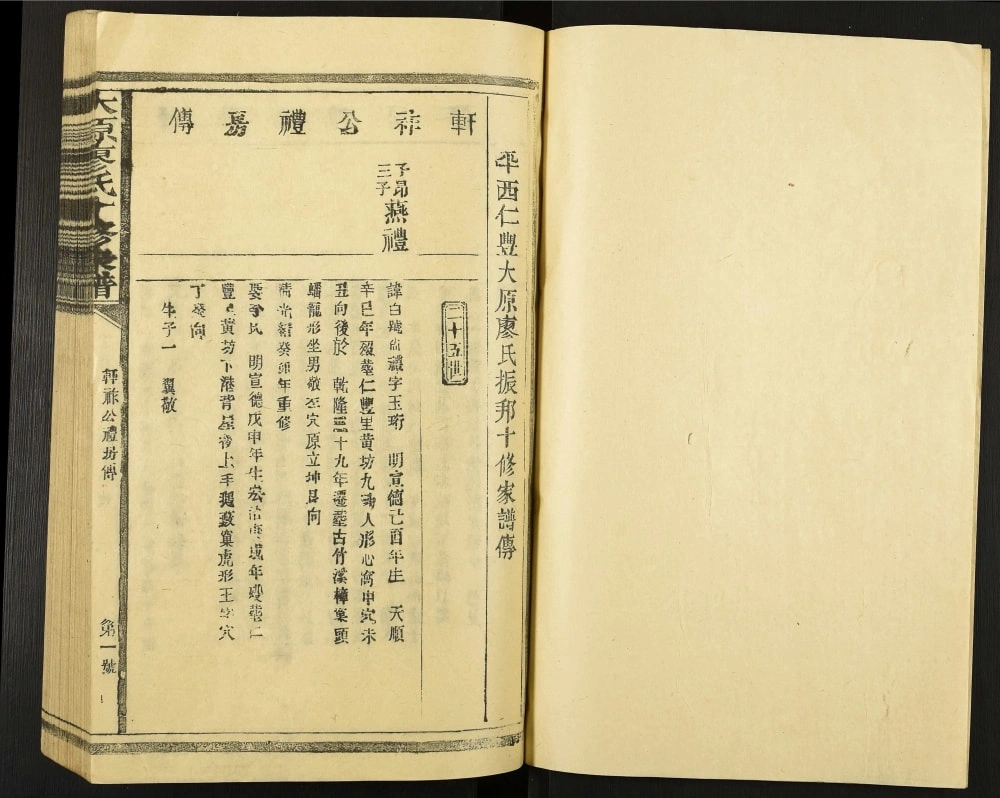 平西仁豐大原廖氏振邦十修家譜傳
軒祚公禮房傳
子昂
三子
燕禮
二十五世
諱白號 字玉珩 明宣德己酉年生 天順
辛巳年歿葬仁豐里黄坊九 人形心窩申穴未
丑向後於 乾隆 十九年遷葬古竹溪樟葉頭
蟠龍形坐男敬 穴原立坤艮向
光緒癸卯年重修
娶 氏 明宣德戊申年生 年歿葬仁
豐 黄坊下港背 後上手 窠虎形王字穴
丁癸向
生子一 翼敬
大原廖氏十修家譜
軒祚公禮坊傳
第一號